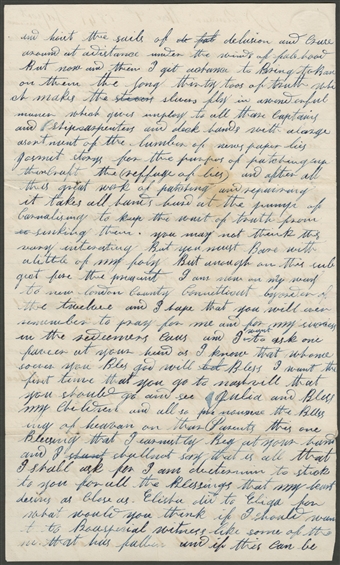 and hoist the sails of delusion and Cruse
around at adistance under the winds of falshood
But now and then I get achance to Bring to bear
on them the long thirty toos of truth
it makes the slivers fly in awonderful
maner which gives imploy to all those Captains
and Ships carpenters and deck hands with alarge
asortment of the lumber of newspaper lies
for the purpos of patching up
the reffuge of lies and after all
this great work of patching and repairing
it takes all hands hard at the pumps of
to keep the wait of truth from
sinking them. you may not think this
very interesting But you must Bare with
alittle of my foly But enough on this sub
ject for the present I am now on my way
to new London County Connecticut by order of
the twelve and I hope that you will ever
remember to pray for me and for my
in the redeemers Caus am I to ask one
favor at your hand as I know that whome
soever you Bles god will Bless I want the
first time that you go to that
you should go and see Julia and Bless
my Children and all so pronounce the Bless
ing of heaven on thare Parents this one
Blessing that I earnestly Beg at your hand
and I say that is all that
I shall ask for I am
to you for all the Blessings that my heart
desires as Close as Elisha did to Eliga for
what would you think if I should wan
t to Be aspecial witness like some of the
that has fallen and if this can be